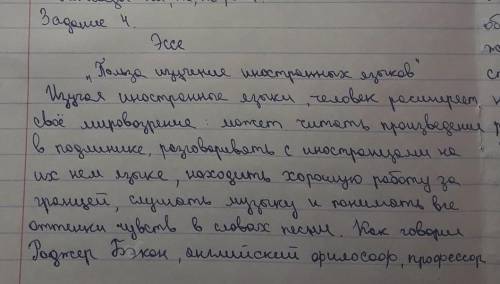 Задание 4.
Эссе
„Польза изучение иностранных языков"
Изучая иностранные языки, человек расширяет
своё мировозрение: может читать произведения
в подлиннике, разговаревать с иностранцами на
их нем языке, находить хорошую работу за
границей, слушать музыку и понимать все
оттенки чувств в словах песни. Как говорил
Роджер Бэкон, английский философ, профессор